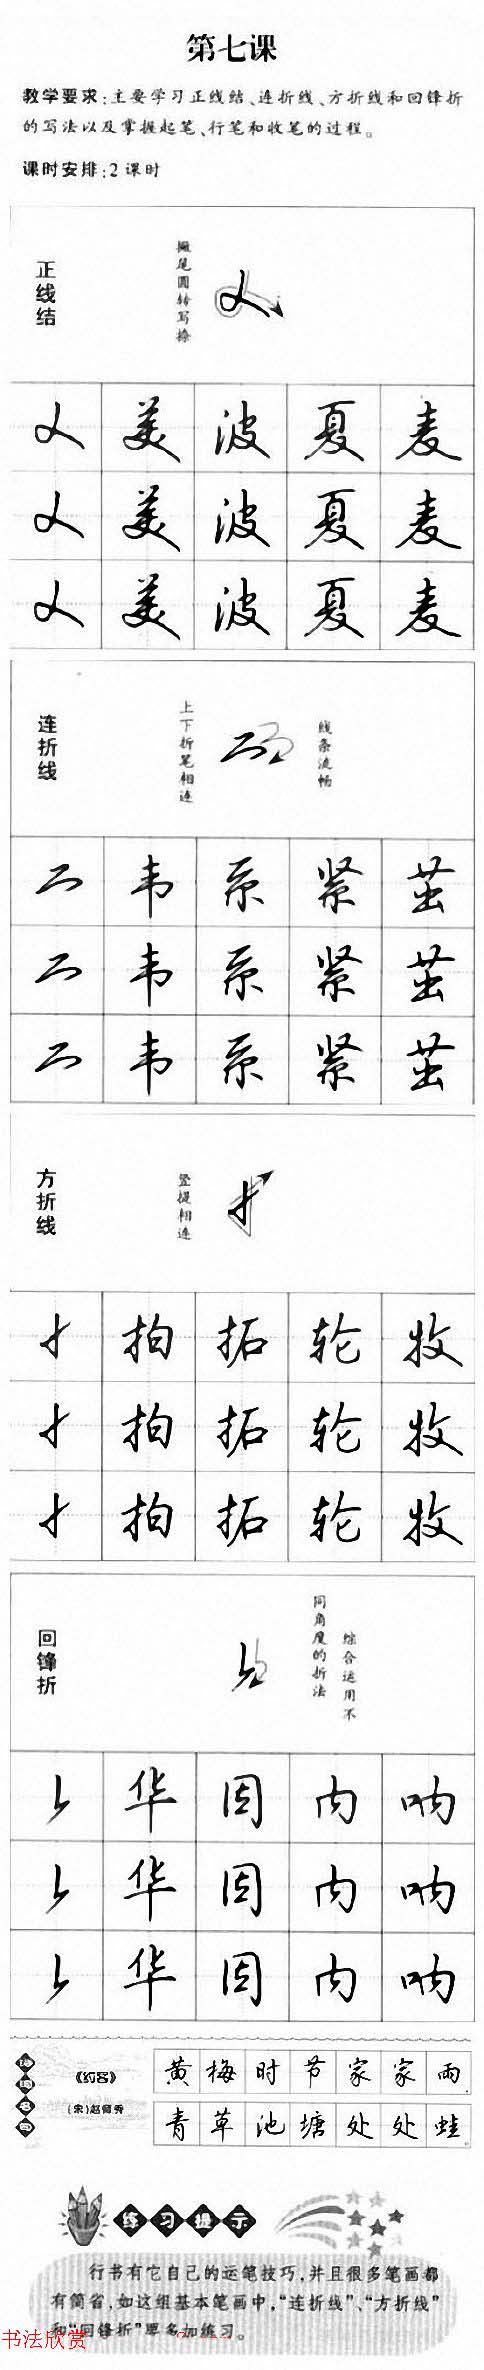 第七课
教学要求:主要学习正线结、连折线、方折线和回锋折
的写法以及掌握起笔、行笔和收笔的过程。
课时安排:2课时
正线结
撇尾圆转写捺
美 波 夏 麦
美 波 夏 麦
美 波 夏 麦
连折线
上下折笔相连
线条流畅
韦 系 紧 茧
韦 系 紧 茧
韦 系 紧 茧
方折线
竖提相连
拍 拓 轮 牧
拍 拓 轮 牧
拍 拓 轮 牧
回锋折
综合运用不
同角度的折法
华 因 内 呐
华 因 内 呐
华 因 内 呐
诗词名句
《约客》
(宋)赵师秀
黄梅时节家家雨
青草池塘处处蛙
练习提示
行书有它自己的运笔技巧,并且很多笔画都
有简省,如这组基本笔画中,“连折线”、“方折线”
和“回锋折”要多加练习。
书法欣赏